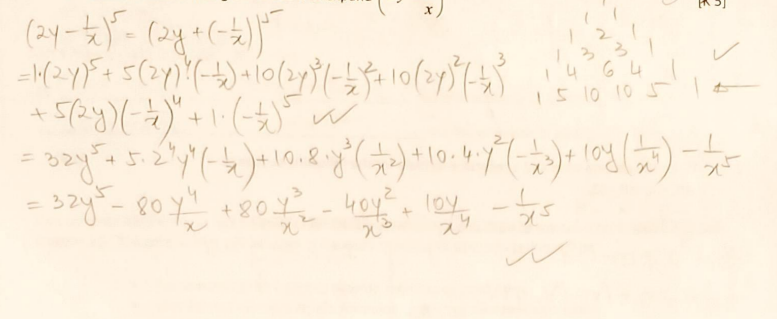 x)
[K 5]
(2y - 1/x)^5 = (2y + (-1/x))^5
= 1·(2y)^5 + 5(2y)^4(-1/x) + 10(2y)^3(-1/x)^2 + 10(2y)^2(-1/x)^3
+ 5(2y)(-1/x)^4 + 1·(-1/x)^5 ✓✓
= 32y^5 + 5·2^4y^4(-1/x) + 10·8·y^3(1/x^2) + 10·4·y^2(-1/x^3) + 10y(1/x^4) - 1/x^5
= 32y^5 - 80 y^4/x + 80 y^3/x^2 - 40y^2/x^3 + 10y/x^4 - 1/x^5
✓✓
1 1
1 2 1
1 3 3 1 ✓
1 4 6 4 1
1 5 10 10 5 1 ←